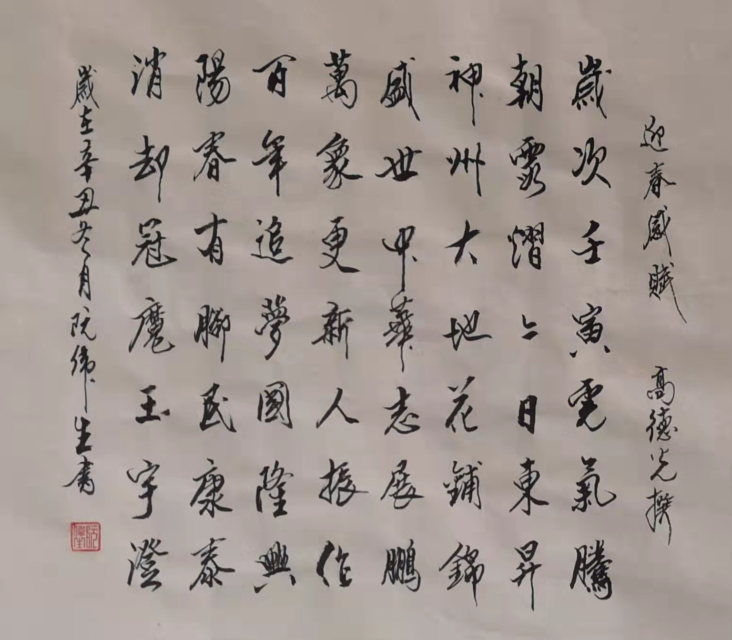 迎春感賦 高德光撰
歲次壬寅虎氣騰
朝霞熠〻日東昇
神州大地花鋪錦
盛世中華志展鵬
萬象更新人振作
百年追夢國隆興
陽春有腳民康泰
消却冠魔玉宇澄
歲在辛丑冬月阮偉生書